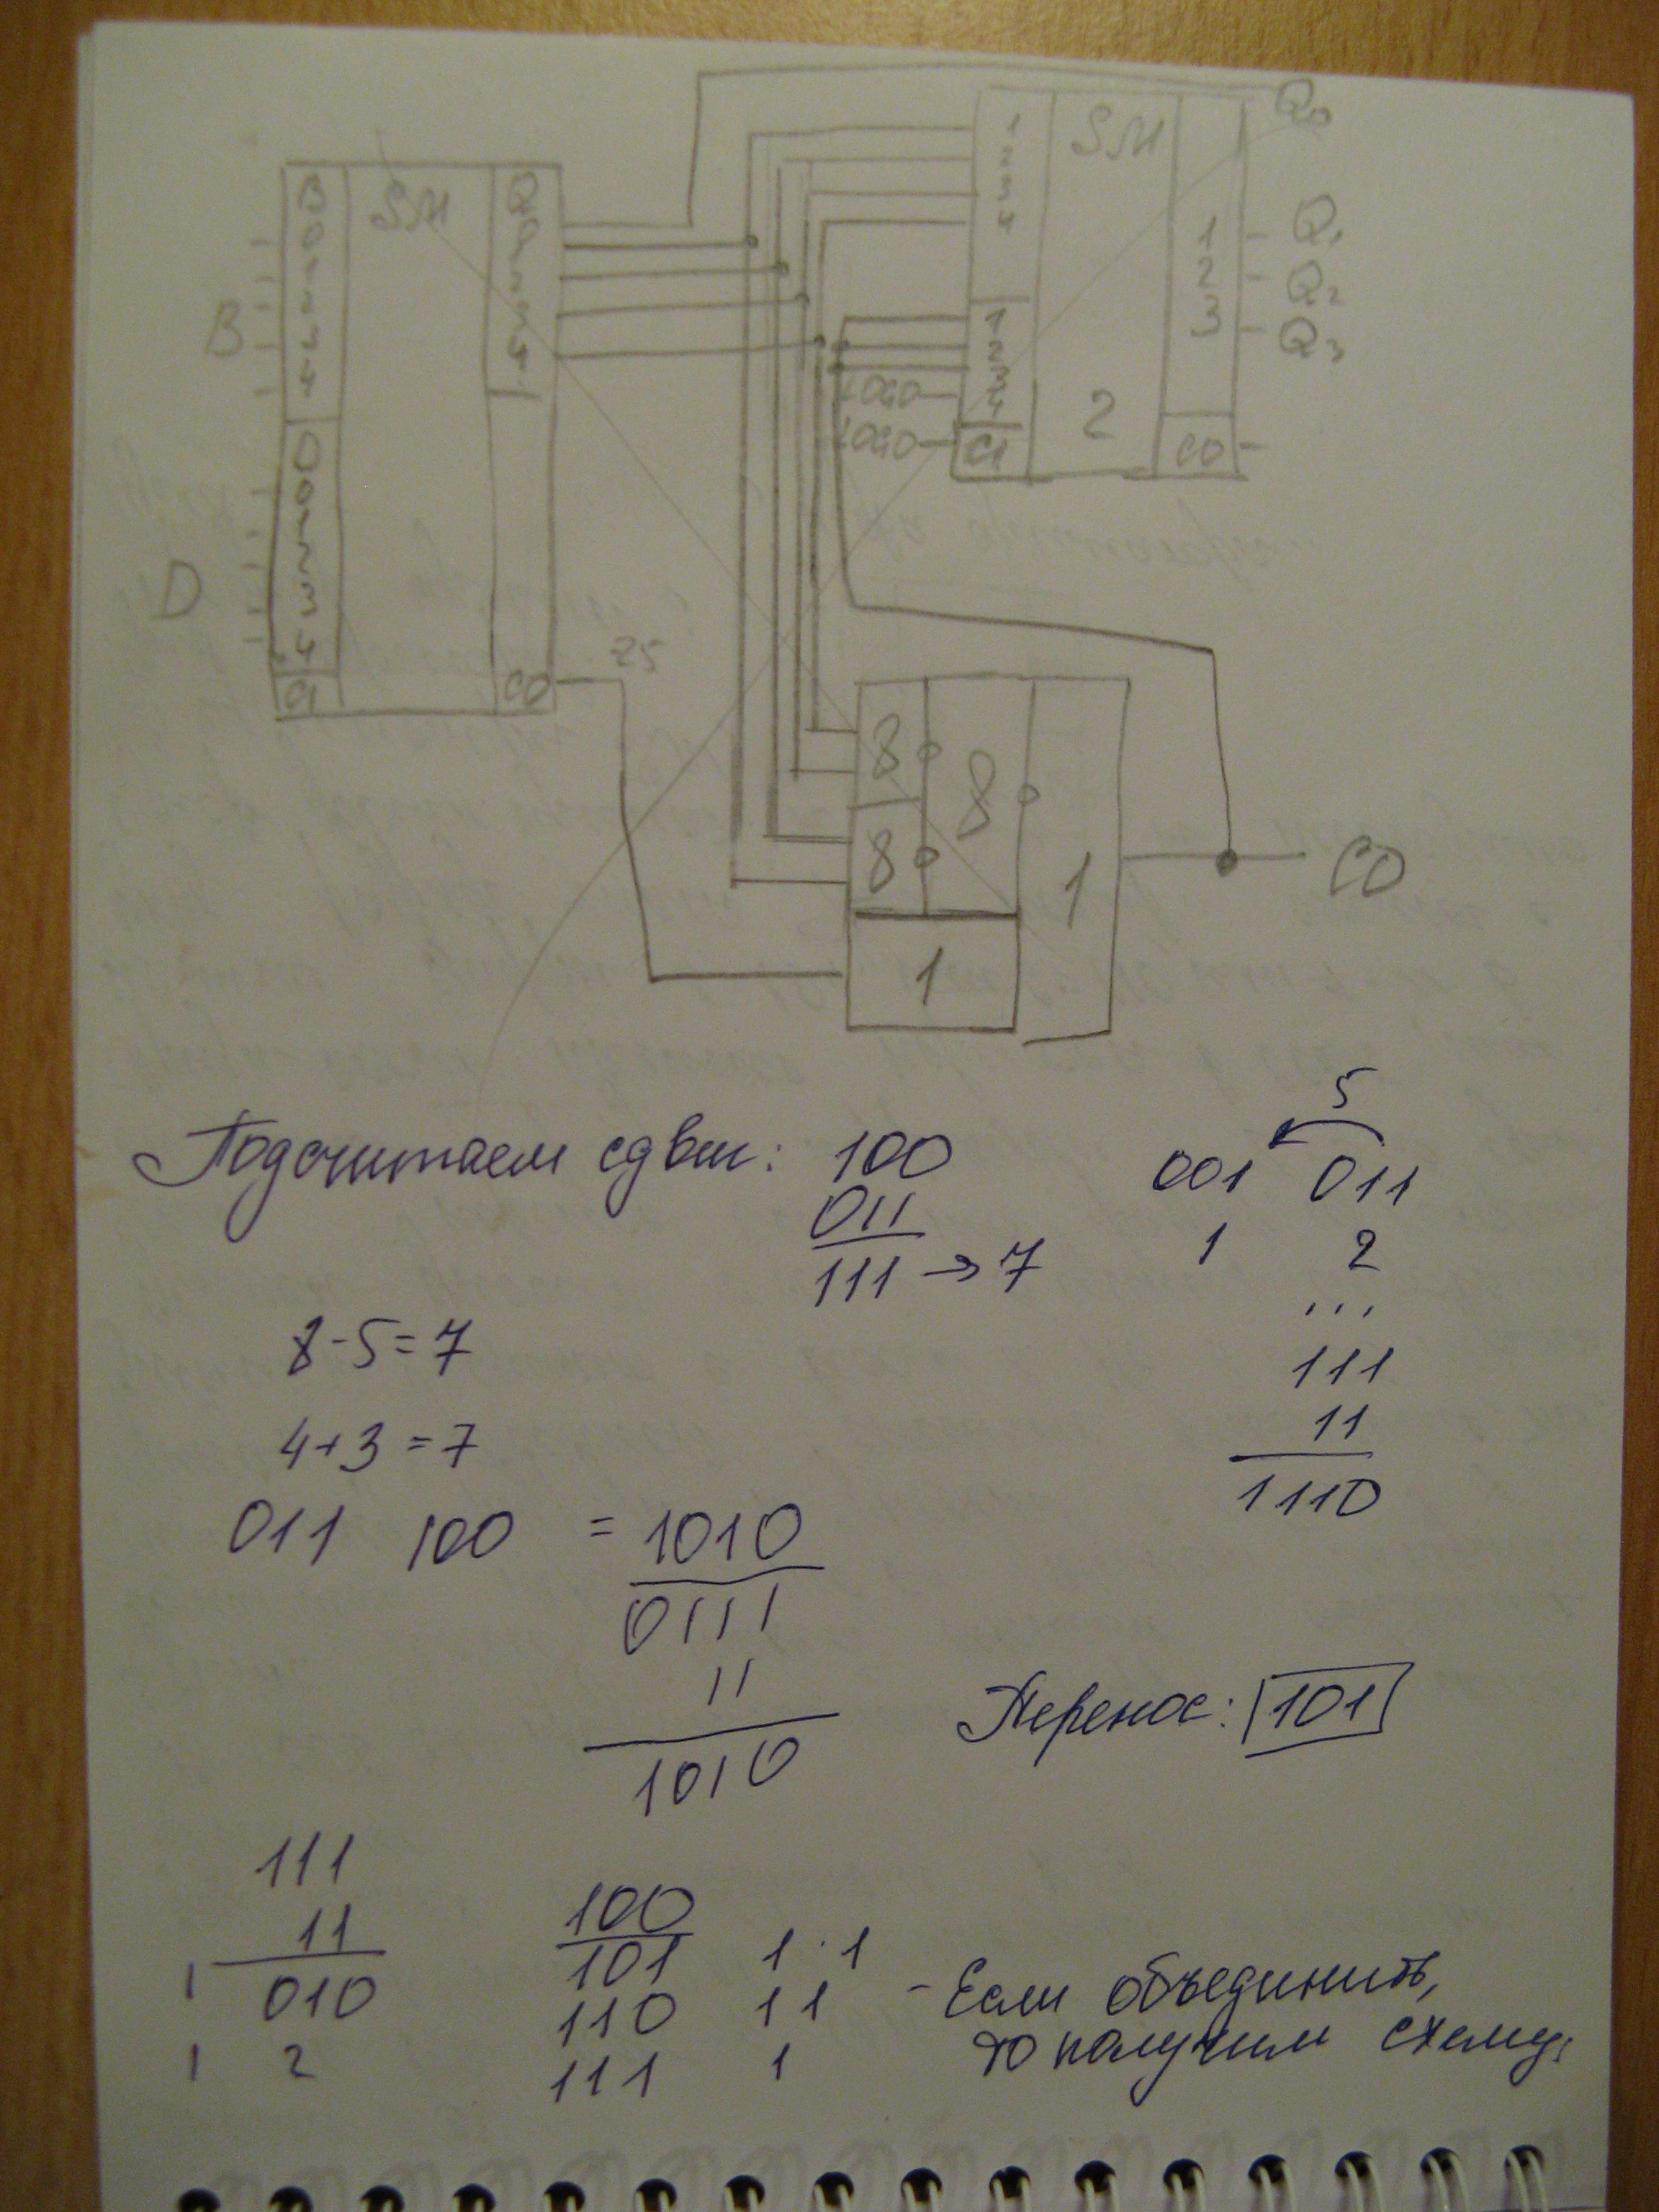 SM
Q0
B
Q
SM
1
2
3
4
1
2
3
Q1
Q2
Q3
B
0
1
2
3
4
0
1
2
3
4
1
2
3
4
CI
2
CO
D
D
0
1
2
3
4
CI
CO
8
8
8
1
1
CO
Подсчитаем сдвиг: 100
011
111 → 7
5
001 011
1 2
...
111
11
1110
8-5=7
4+3=7
011 100 = 1010
0111
11
1010
Перенос: 101
111
11
1 010
1 2
100
101 1 1
110 11
111 1
- Если объединить,
то получим схему: